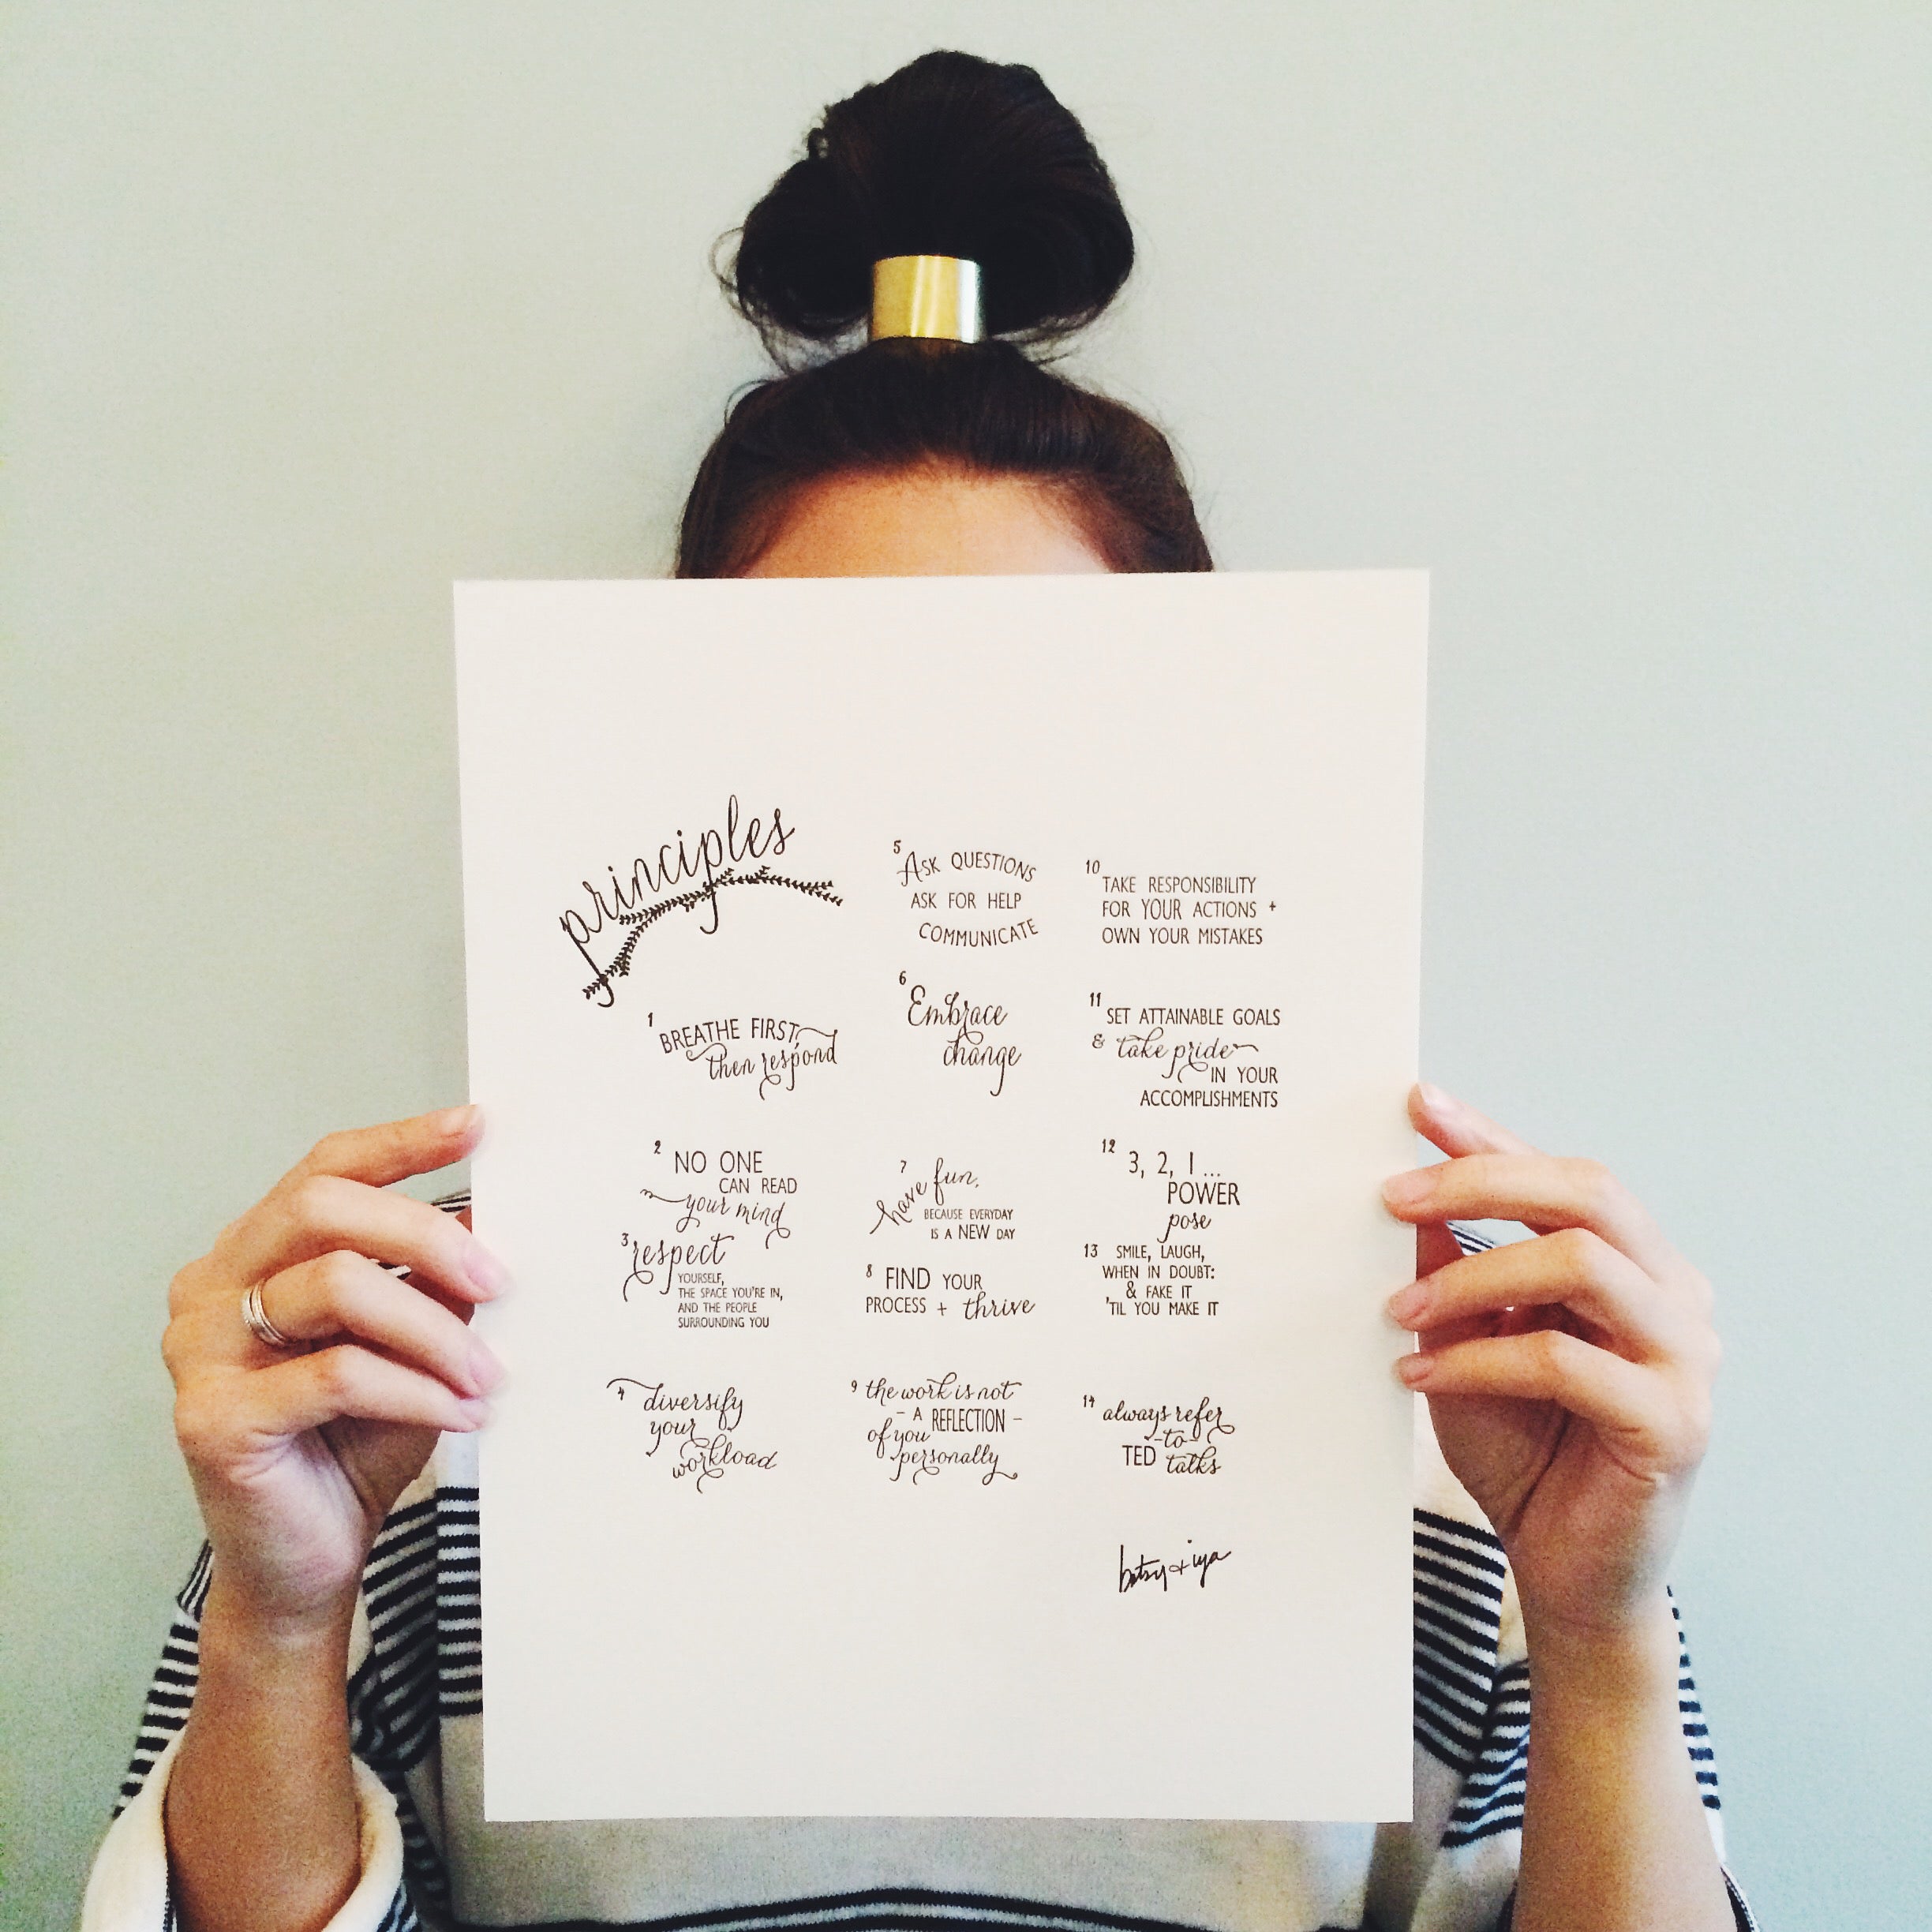 principles
1
BREATHE FIRST,
then respond
2
NO ONE
CAN READ
your mind
3
respect
YOURSELF,
THE SPACE YOU'RE IN,
AND THE PEOPLE
SURROUNDING YOU
4
diversify
your
workload
5
ASK QUESTIONS
ASK FOR HELP
COMMUNICATE
6
Embrace
change
7
have fun,
BECAUSE EVERYDAY
IS A NEW DAY
8 FIND YOUR
PROCESS + thrive
9 the work is not
- A REFLECTION -
of you
personally
10
TAKE RESPONSIBILITY
FOR YOUR ACTIONS +
OWN YOUR MISTAKES
11
SET ATTAINABLE GOALS
& take pride
IN YOUR
ACCOMPLISHMENTS
12
3, 2, 1...
POWER
pose
13 SMILE, LAUGH,
WHEN IN DOUBT:
& FAKE IT
'TIL YOU MAKE IT
14
always refer
-to-
TED talks
betsy & iya